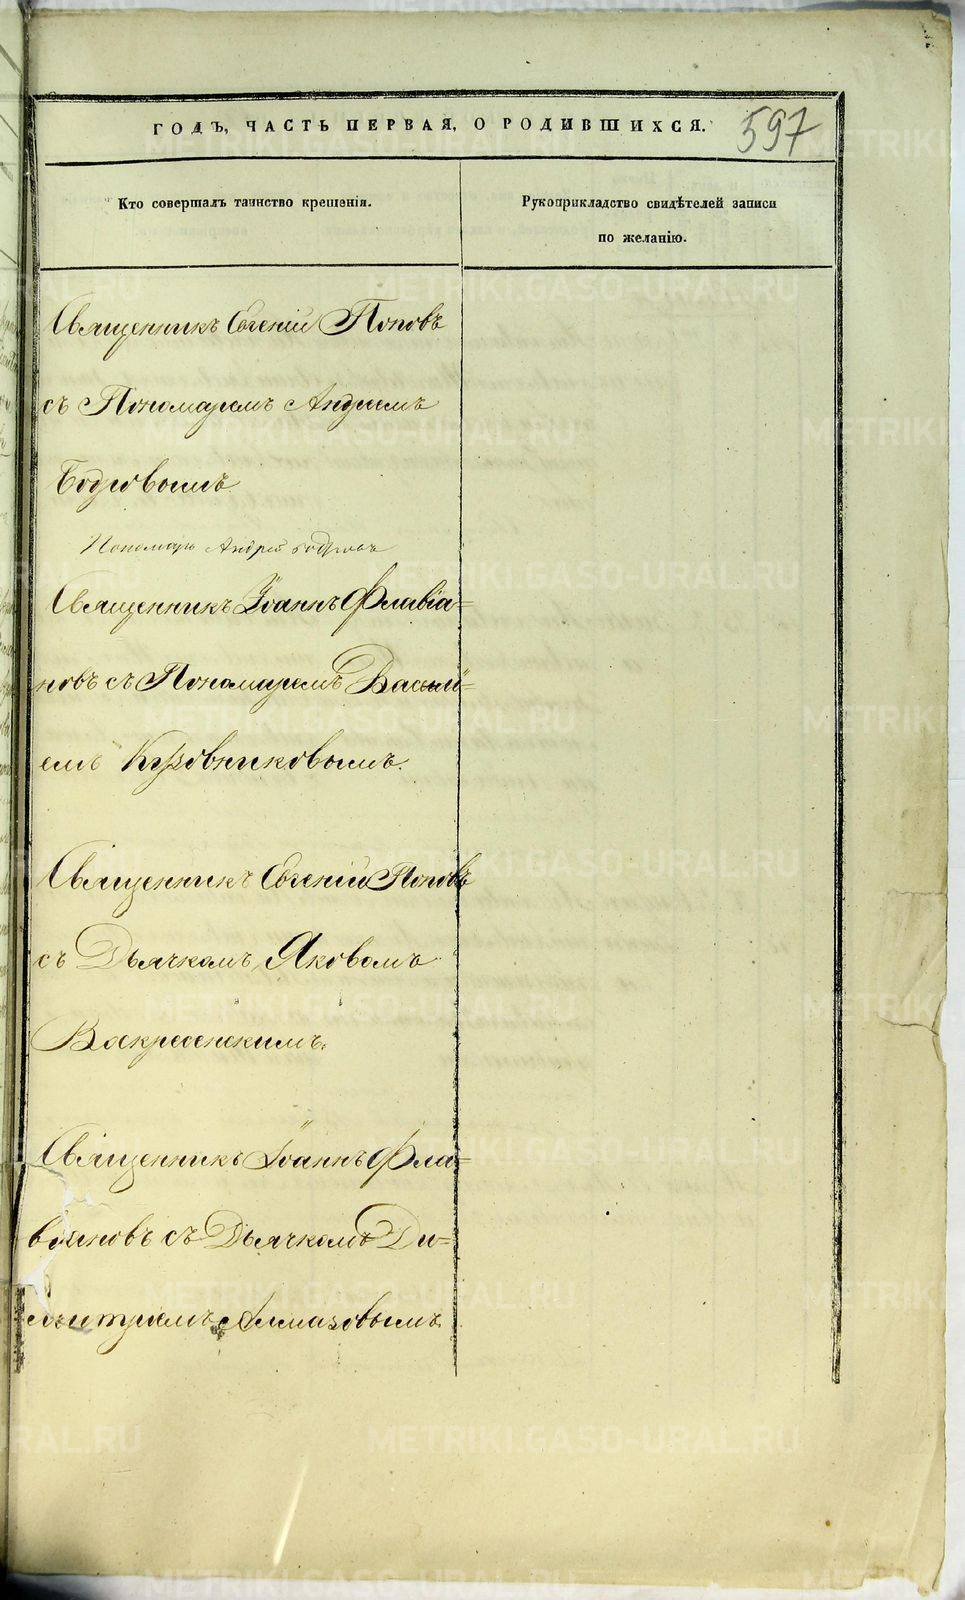 ГОДЪ, ЧАСТЬ ПЕРВАЯ, О РОДИВШИХСЯ.
597
Кто совершалъ таинство крещенія.
Рукоприкладство свидѣтелей записи
по желанію.
Священникъ Евгеній Поповъ
съ Пономаремъ Андреемъ
Бодровымъ
Пономарь Андрей Бодровъ
Священникъ Іоаннъ Флавіа=
новъ съ Пономаремъ Василі=
емъ Кузовниковымъ.
Священникъ Евгеній Поповъ
съ Дьячкомъ Яковомъ
Воскресенскимъ.
Священникъ Іоаннъ Фла=
віановъ съ Дьячкомъ Ди=
митріемъ Алмазовымъ
METRIKI.GASO-URAL.RU